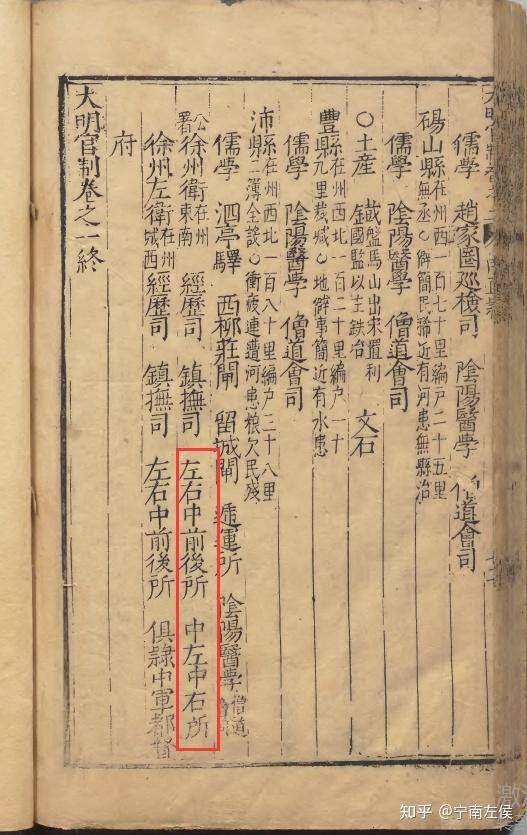 儒學 趙家圈巡檢司 陰陽醫學 僧道會司
碭山縣 在州西一百七十里編户二十五里
無丞○僻簡民稀近有河患無縣治
儒學 陰陽醫學 僧道會司
○土産 鐵盤馬山出宋置利
國監以主鉄冶 文石
豐縣 在州西北一百二十里編户一十
九里裁減○地僻事簡近有水患
儒學 陰陽醫學 僧道會司
沛縣 在州西北一百八十里編户二十八里
二簿全設○衝疲連遭河患粮欠民殘
儒學 泗亭驛 西柳莊閘 留城閘 遞運所 陰陽醫學 僧道
公署 徐州衛 在州東南 經歷司 鎮撫司 左右中前後所 中左中右所
徐州左衛 在州城西 經歷司 鎮撫司 左右中前後所 俱隸中軍都督
府
大明官制卷之一終
知乎 @宁南左侯